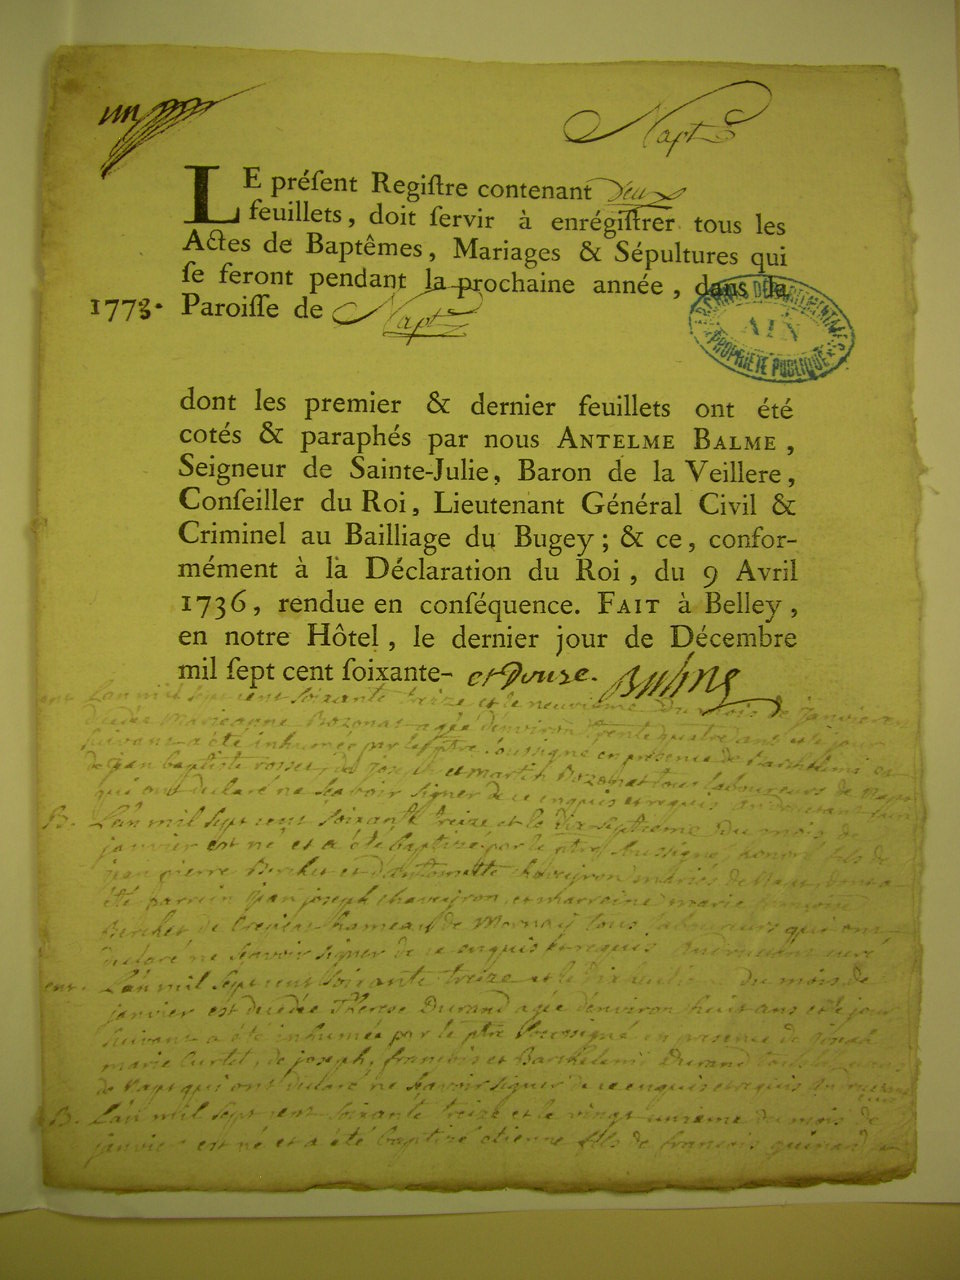 un
Napt
LE préſent Regiſtre contenant Deux
feuillets, doit ſervir à enrégiſtrer tous les
Actes de Baptêmes, Mariages & Sépultures qui
ſe feront pendant la prochaine année, dans la
1773. Paroiſſe de Napt
ARCHIVES DÉPARTEMENTALES
AIN
PROPRIÉTÉ PUBLIQUE
dont les premier & dernier feuillets ont été
cotés & paraphés par nous ANTELME BALME,
Seigneur de Sainte-Julie, Baron de la Veillere,
Conſeiller du Roi, Lieutenant Général Civil &
Criminel au Bailliage du Bugey; & ce, confor-
mément à la Déclaration du Roi, du 9 Avril
1736, rendue en conſéquence. FAIT à Belley,
en notre Hôtel, le dernier jour de Décembre
mil ſept cent ſoixante- et Douze. Balme
ent L'an mil sept cent soixante treize et le neuvieme du mois de janvier est
décédée Marieanne Bozonat agée d'environ trente quatre ans et le jour
suivant a été inhumée par le ptre soussigné en présence de Barthelemi et
de jean baptiste rosset, de joseph et martin Bozonat tous laboureurs de Napt
qui ont declaré ne sçavoir signer de ce enquis et requis
B. L'an mil sept cent soixante treize et le dix septieme du mois de
janvier est né et a été baptizé par le ptre soussigné, honoré fils de
jean pierre Berchet et d'antoinette chaveyron mariés de Napt, dont a
été parrein jean joseph chaveyron, et marraine marie françoise
Berchet de hameau de Mornay tous laboureurs qui ont
declaré ne sçavoir signer de ce enquis et requis curé
ent. L'an mil sept cent soixante treize et le du mois de
janvier est decedée Therese Durand agée d'environ huit ans et le jour
suivant a été inhumée par le ptre soussigné en presence de joseph
marie Curtet, de joseph, francois et Barthelemi Durand tous
de Napt qui ont declaré ne sçavoir signer de ce enquis et requis
B. L'an mil sept cent soixante treize et le vingt unieme du mois de
janvier est né et a été baptizé etienne fils de francois